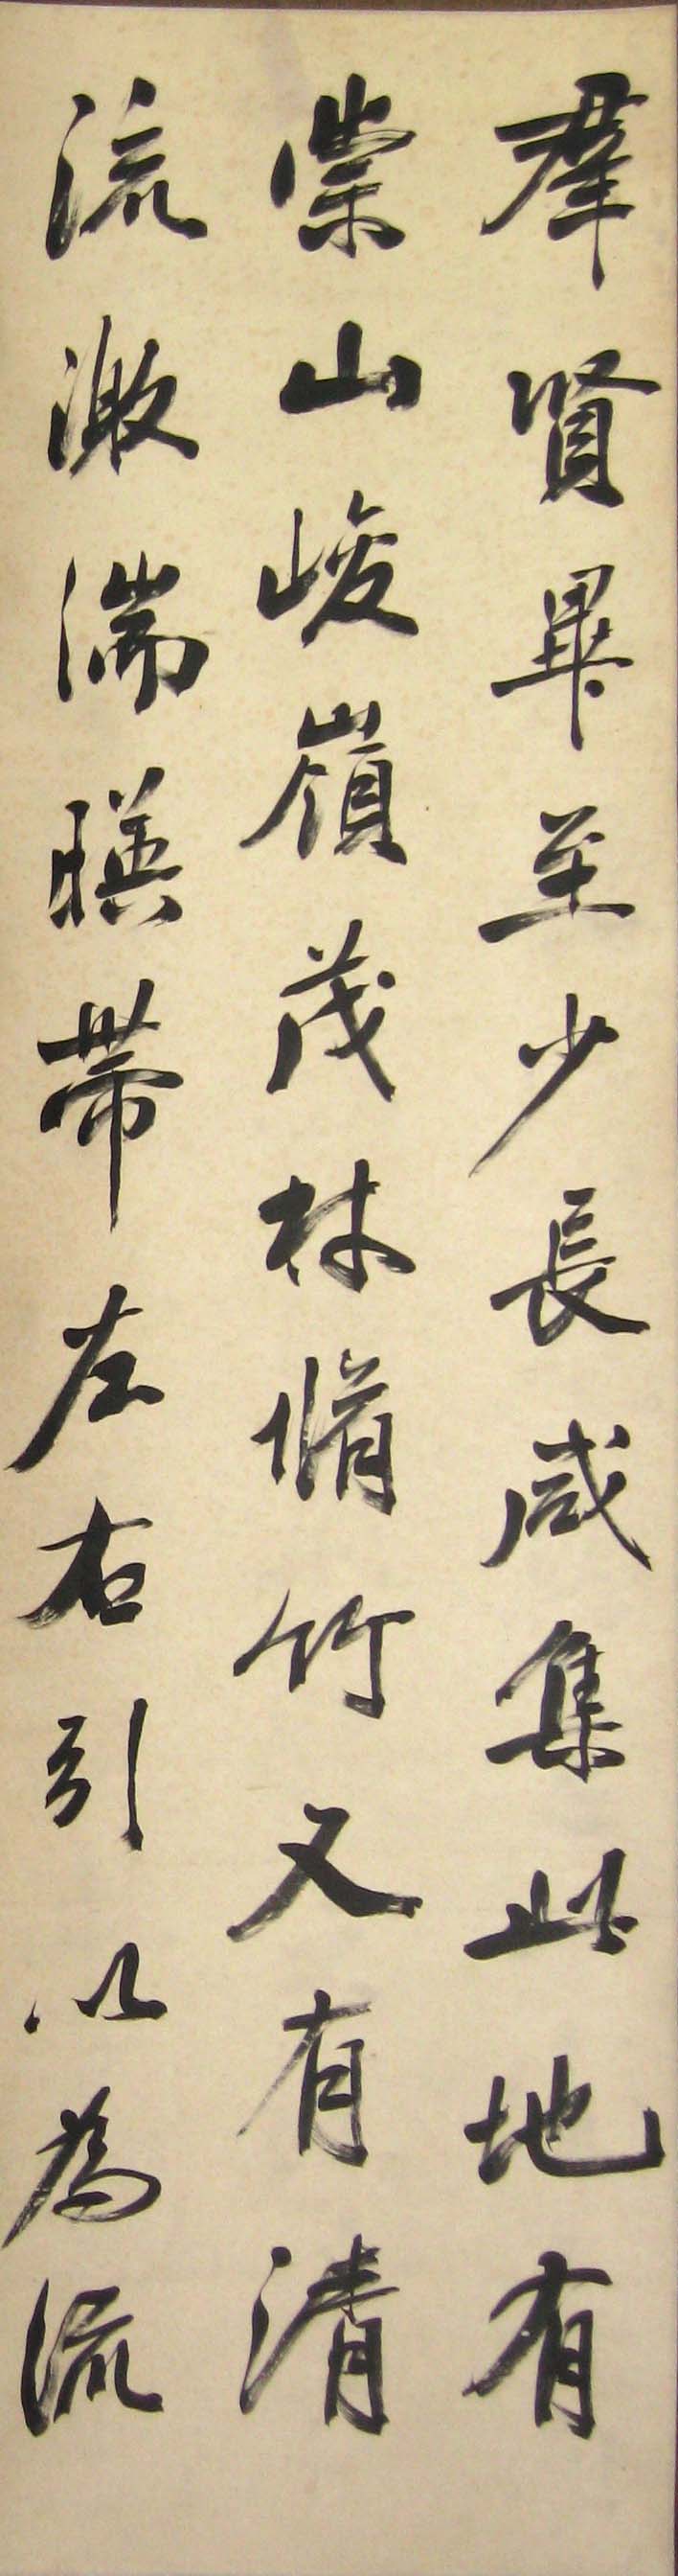 羣賢畢至少長咸集此地有
崇山峻嶺茂林脩竹又有清
流激湍暎帶左右引以為流